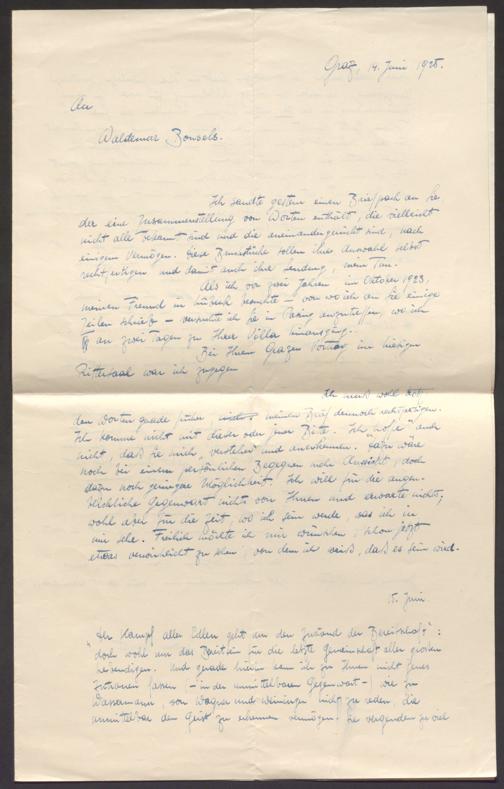 Graz, 14. Juni 1925.
An
Waldemar Bonsels.
Ich sandte gestern einen Brief auch an Sie
der eine Zusammenstellung von Worten enthält, die vielleicht
nicht alle bekannt sind und die aneinandergereiht sind, nach
einigem Vermögen. Diese sollen ihre Auswahl selbst
rechtfertigen und damit auch ihre Sendung, mein Tun.
Als ich vor zwei Jahren im Oktober 1923,
meinen Freund in besuchte – von wo ich an Sie einige
Zeilen schrieb – versuchte ich Sie in Pasing anzutreffen, wo ich
an zwei Tagen zu Ihrer Villa hinausging.
Bei Ihrem Grazer Vortrag im hiesigen
Rittersaal war ich zugegen
Ich muß wohl
den Worten gerade meinen Brief dennoch rechtfertigen.
Ich komme nicht mit dieser oder jener Bitte. Ich "hoffe" auch
nicht, daß Sie mich, verstehen und anerkennen. Dafür wäre
noch bei einem persönlichen Begegnen mehr Aussicht, doch
dazu noch geringere Möglichkeit. Ich will für die augen-
blickliche Gegenwart nicht von Ihnen und erwarte nichts;
wohl aber für die Zeit, wo ich sein werde, was ich in
mir sehe. Freilich möchte ich mir wünschen, schon jetzt
etwas verwirklicht zu sehen, von dem ich weiß, daß es sein wird.
15. Juni.
"Der Kampf aller Edlen geht um den Zustand der Bereitschaft":
doch wohl um das Bereitsein für die letzte Gemeinschaft aller großen
. Und gerade hierin kann ich zu Ihnen nicht jenes
Zutrauen fassen (– in der unmittelbaren Gegenwart –) wie zu
Wassermann, von Wagner und Weininger nicht zu reden, die
unmittelbar den Geist zu erkennen vermögen. Sie vergeuden zu viel